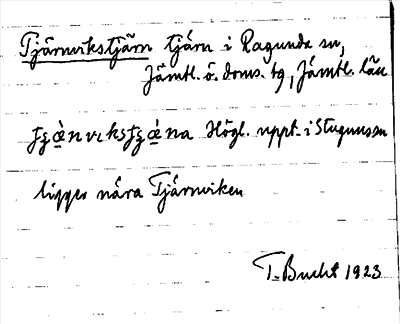 Tjärnvikstjärn tjärn i Ragunda sn,
Jämtl. ö. doms. tg, Jämtl. län
Högl. uppt. i Stugun sn
ligger nära Tjärnviken
T. Bucht 1923